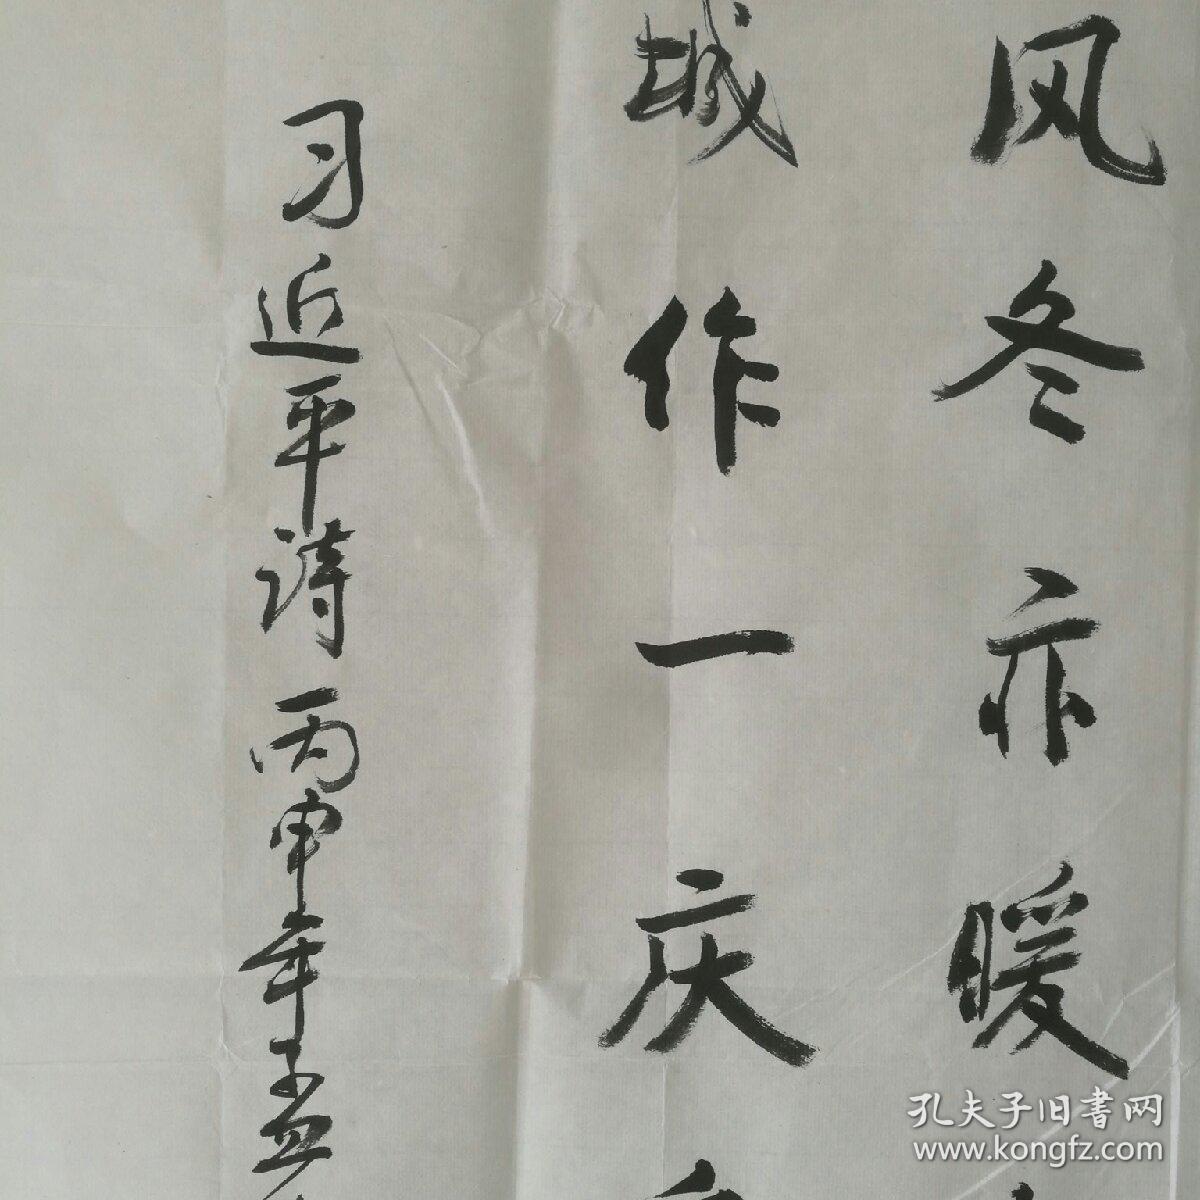 风冬亦暖
城作一庆
习近平诗丙申年孟
孔夫子旧書网
www.kongfz.com